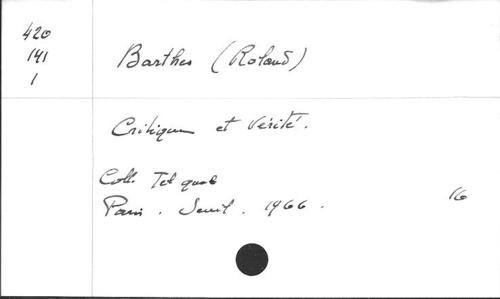 420
141
1
Barthes (Roland)
Critique et Vérité.
Coll. Tel quel
Paris. Seuil. 1966.
16